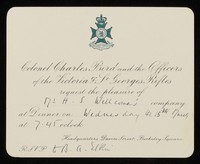 Colonel Charles Burd and the Officers
of the Victoria & St Georges Rifles
request the pleasure of
H. S. Williams' company
at Dinner on Wednesday
at 7.45 o'clock
Headquarters, Davies Street, Berkeley Square
R.S.V.P. to